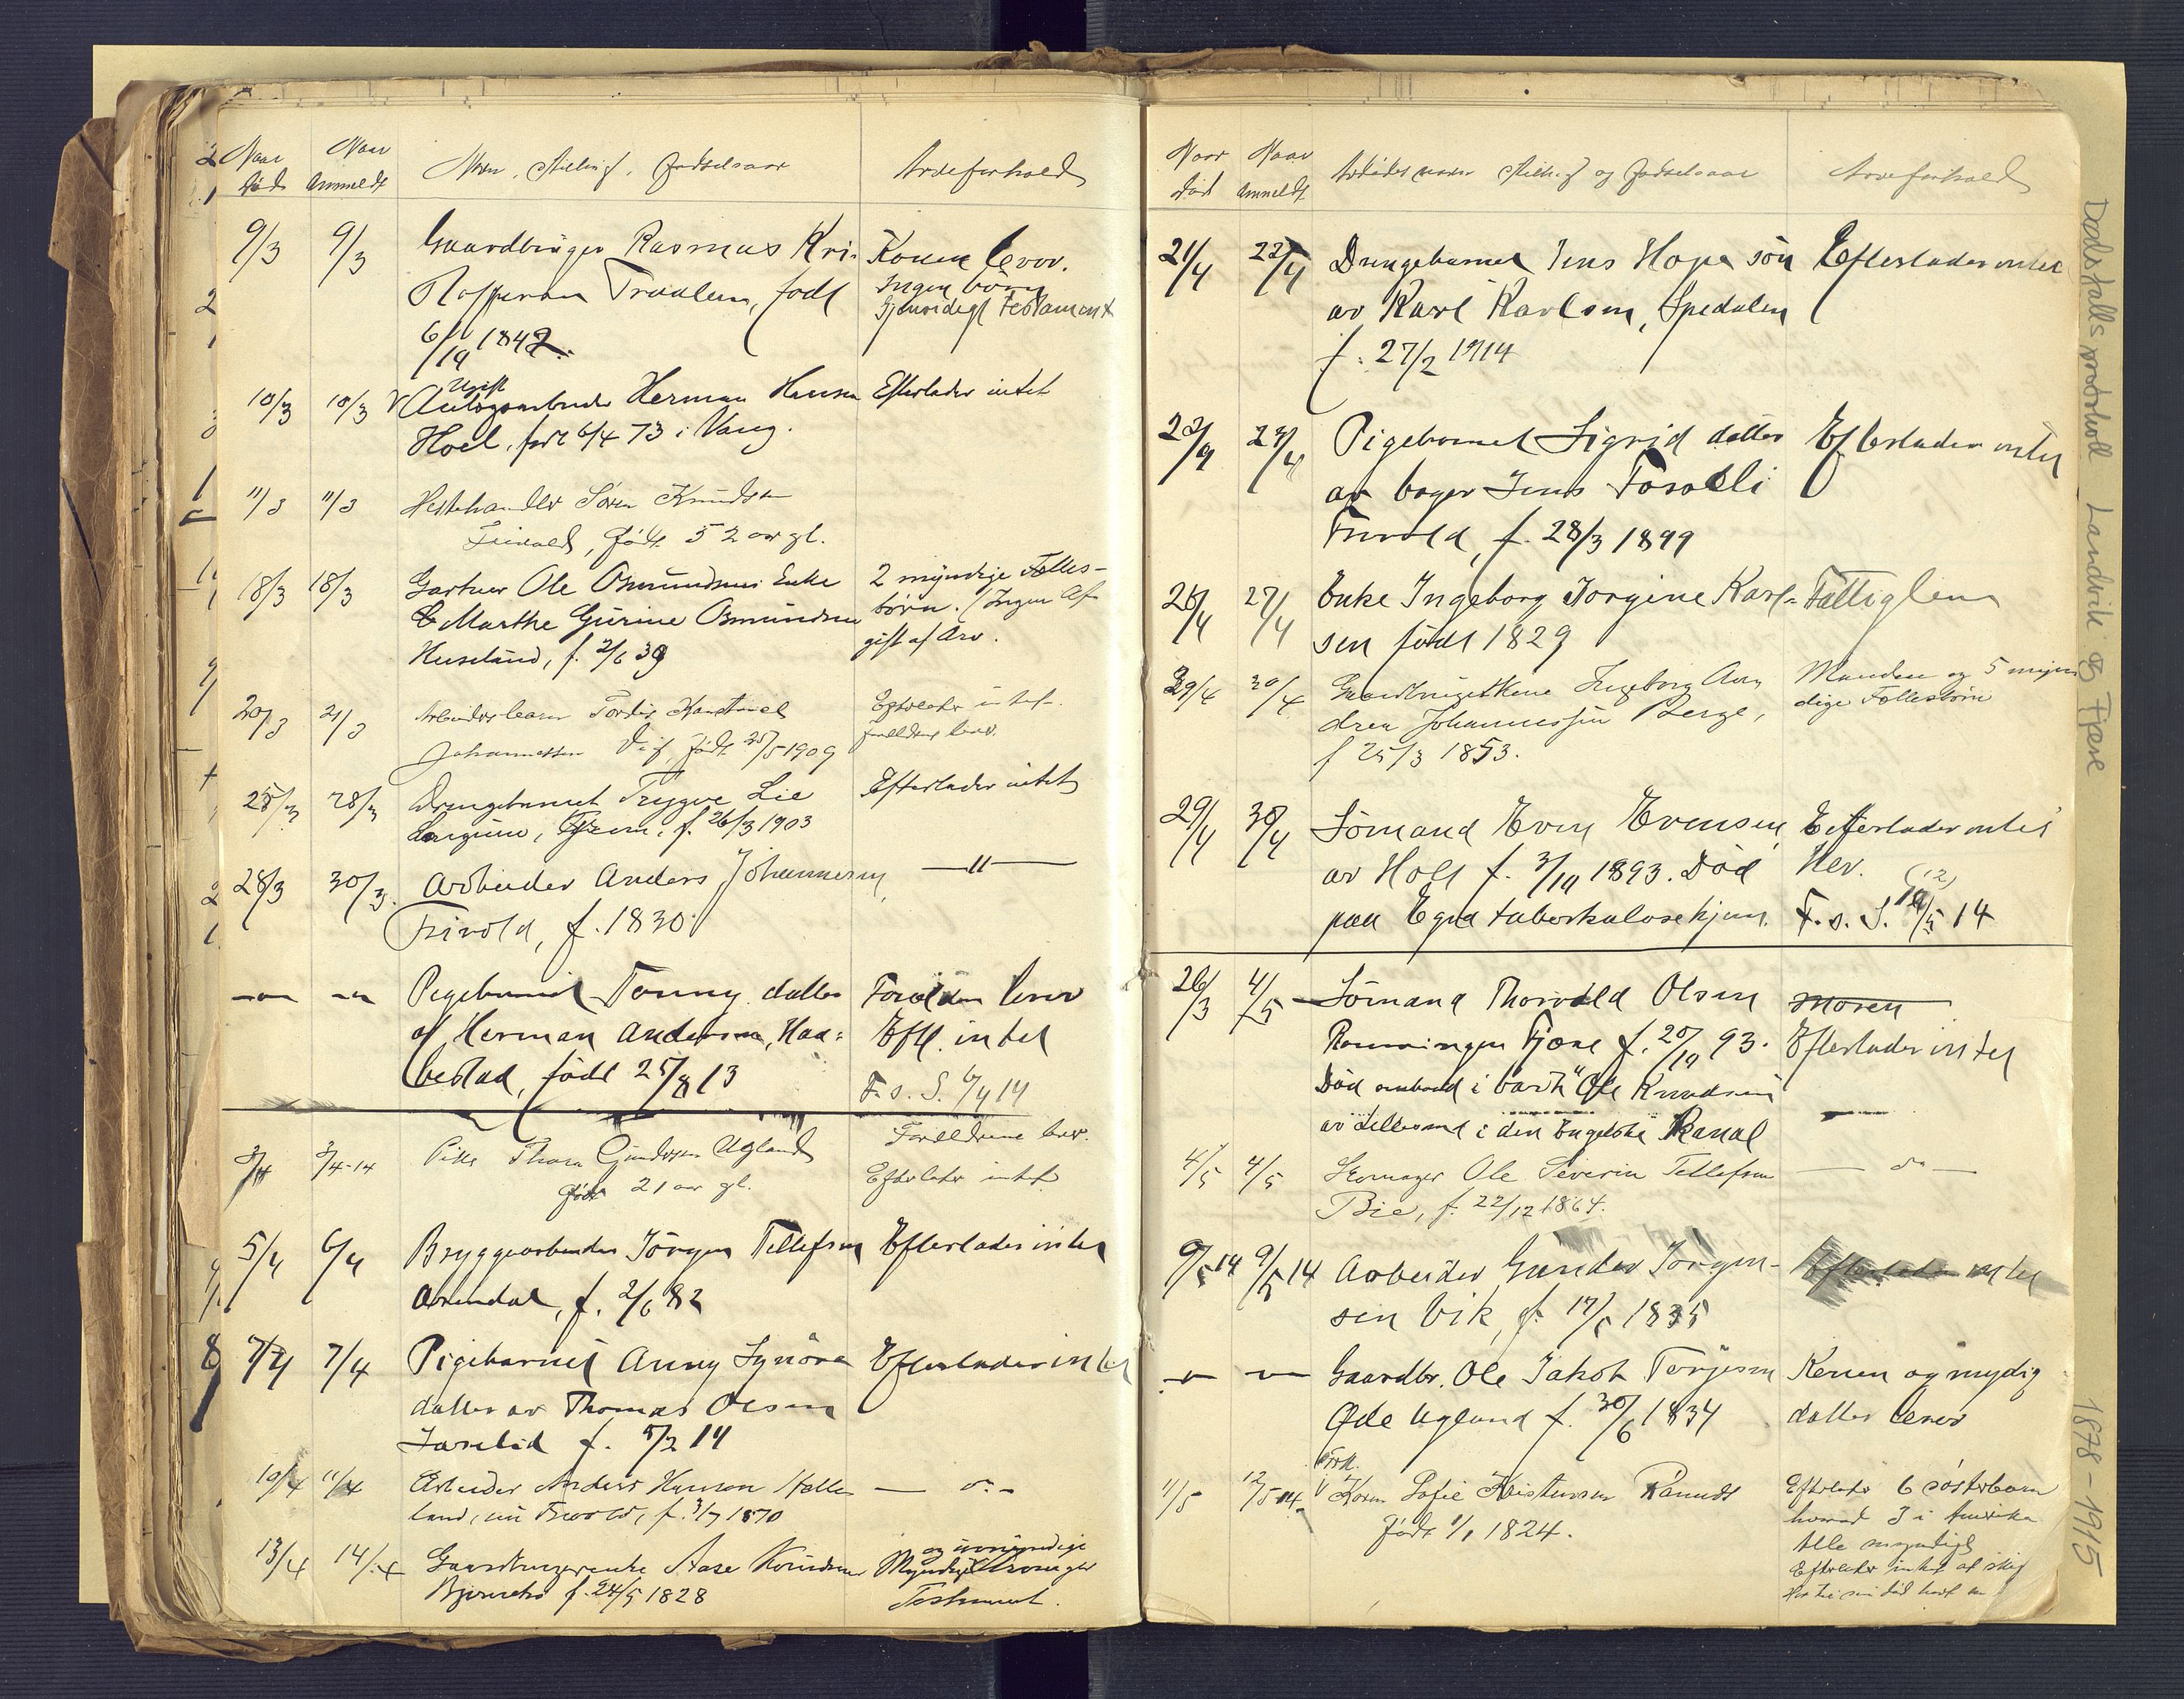 Naar Død
Naar anmeldt
Navn, Stilling, Fødselsaar
Arveforhold
9/3 9/3 Gaardbruger Rasmus Kri-
Fodt
6/10 1842.
Konen lever.
Ingen børn
Gjensidigt Testament
10/3 10/3 Ugift
Anlægsarbeider Herman Hansen
Hoel, født 6/4 73 i Vang.
Efterlader intet
11/3 11/3 Hestehandler Søren Knudsen
Frivold, født 52 aar gl.
18/3 18/3 Gartner Ole Osmundsens Enke
Marthe Gurine Osmundsen
f. 2/6 39
2 myndige Fælles-
børn. (Ingen Af-
gift af Arv.
20/3 21/3 Tordis
Johannessen Vik, født 25/5 1909
Efterlader intet.
Forældrene lever.
28/3 28/3 Drengebarnet Trygve Lie
f. 26/3 1903
Efterlader intet
28/3 30/3. Arbeider Anders Johannesen,
Frivold, f. 1830
— " —
— " — — " — Pigebarnet Tonny datter
af Herman Andersen, Haa-
bestad, født 25/8 13
Forældren lever
Eftl. intet
F. s. S. 6/4 14
3/4 3/4-14 Pike Thora Gundersen Ugland
født 21 aar gl.
Forældrene lever.
Efterlader intet
5/4 6/4 Bryggearbeider Jörgen Tellefsen
Arendal, f. 2/6 82
Efterlader intet
8 7/4 7/4 Pigebarnet Anny Synöve
datter av Thomas Olsen
f. 5/2 14
Efterlader intet
10/4 11/4 Arbeider Anders Hanson Halle-
land, nu Frivold, f. 3/7 1870
— o. —
13/4 14/4 Gaardbrugerenke Aase Knudsen
f. 24/5 1828
og umyndige
Myndige
Testament.
Naar død
Naar anmeldt
Avdødes navn Stilling og Fødselsaar
Arveforhold
21/4 22/4 Drengebarnet Jens Hope søn
av Karl Karlsen, Spedalen
f. 27/2 1914
Efterlader intet
23/4 23/4 Pigebarnet Sigrid datter
av bager Jens
Frivold, f. 28/3 1899
Efterlader intet
26/4 27/4 Enke Ingeborg Jorgine Karl-
sen født 1829
Fattiglem
29/4 30/4 Gaardbrugerkone Ingeborg An-
drea Johannessen Berge,
f 25/3 1853.
Manden og 5 myn-
dige Fællesbørn
29/4 30/4 Sömand Even Evensen
av Holt f. 3/10 1893. Död
paa Egra tuberkulosehjem.
Efterlader intet
Her.
(12)
F. s. S. 14
26/3 4/5 Sömand Thorvald Olsen
Rønningen Fjære f. 20/10 93.
Död ombord i bark "Ole Knudsen"
av Lillesand i den Engelske Kanal
Moren
Efterlader intet
4/5 4/5 Skomager Ole Severin Tellefsen
Bie, f. 22/12 1864.
— o —
9/5 14 9/5 14 Arbeider Gunder Jörgen-
sen Vik, f. 17/5 1835
Efterlader intet
— " — — " — Gaardbr. Ole Jakob Terjesen
Øde Ugland f. 30/6 1834
Konen og myndig
datter lever
11/5 12/5-14 Frk.
Karen Sofie Kristensen
født 1/1 1824.
Efterlader 6 søsterbarn
hvorav 3 i Amerika
Alle myndige
Efterlader intet
Dødsfallsprotokoll Landvik og Fjære 1878-1915